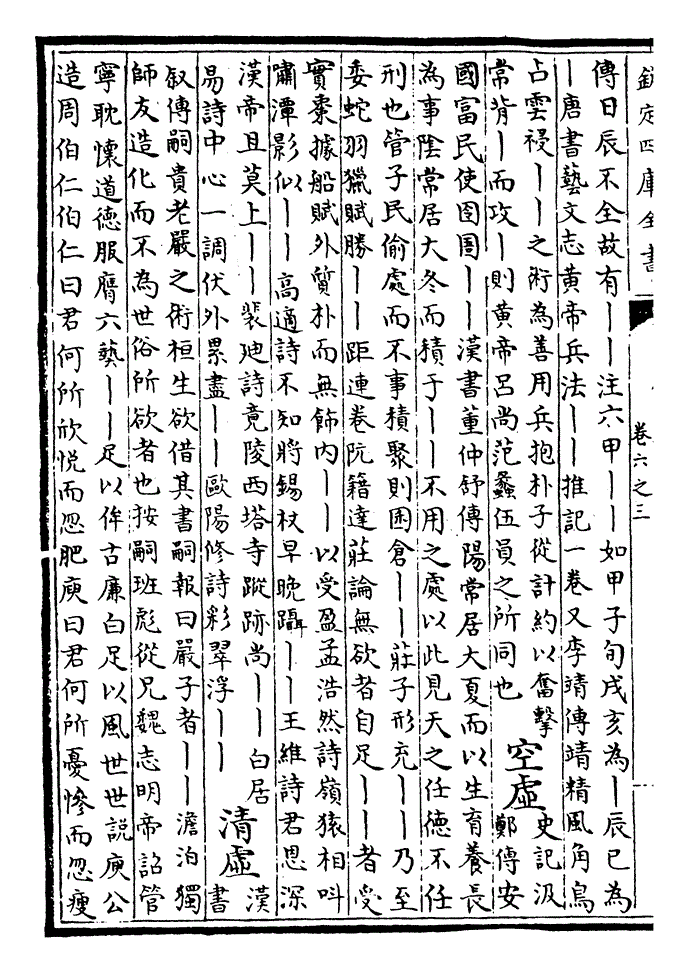 欽定四庫全書 卷六之三
傳日辰不全故有丨丨注六甲丨丨如甲子旬戌亥為丨辰巳為
丨唐書藝文志黄帝兵法丨丨推記一卷又李靖傳靖精風角鳥
占雲祲丨丨之術為善用兵抱朴子從計約以奮擊
常背丨而攻丨則黄帝吕尚范蠡伍員之所同也
空虛
史記汲
鄭傳安
國富民使囹圄丨丨漢書董仲舒傳陽常居大夏而以生育養長
為事陰常居大冬而積于丨丨不用之處以此見天之任德不任
刑也管子民偷處而不事積聚則囷倉丨丨莊子形充丨丨乃至
委蛇羽獵賦勝丨丨距連卷阮籍達莊論無欲者自足丨丨者受
實棗據船賦外質朴而無飾内丨丨以受盈孟浩然詩嶺猿相叫
嘯潭影似丨丨高適詩不知將錫杖早晚躡丨丨王維詩君恩深
漢帝且莫上丨丨裴廸詩竟陵西塔寺蹤跡尚丨丨白居
易詩中心一調伏外累盡丨丨歐陽修詩彩翠浮丨丨
清虛
漢
書
叙傳嗣貴老嚴之術桓生欲借其書嗣報曰嚴子者丨丨澹泊獨
師友造化而不為世俗所欲者也按嗣班彪從兄魏志明帝詔管
寧耽懷道德服膺六藝丨丨足以侔古廉白足以風世世説庾公
造周伯仁伯仁曰君何所欣悦而忽肥庾曰君何所憂慘而忽瘦